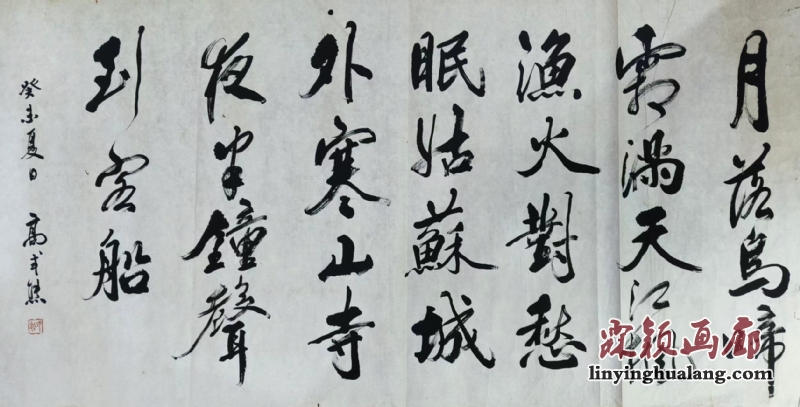 月落烏啼
霜滿天江楓
漁火對愁
眠姑蘇城
外寒山寺
夜半鐘聲
到客船
癸未夏日 高式熊
霖颖画廊
linyinghualang.com